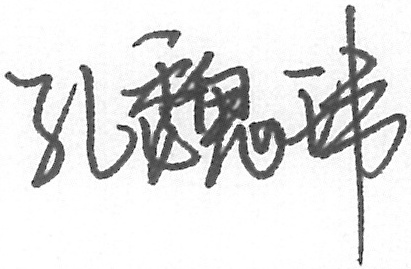 孔魏玮